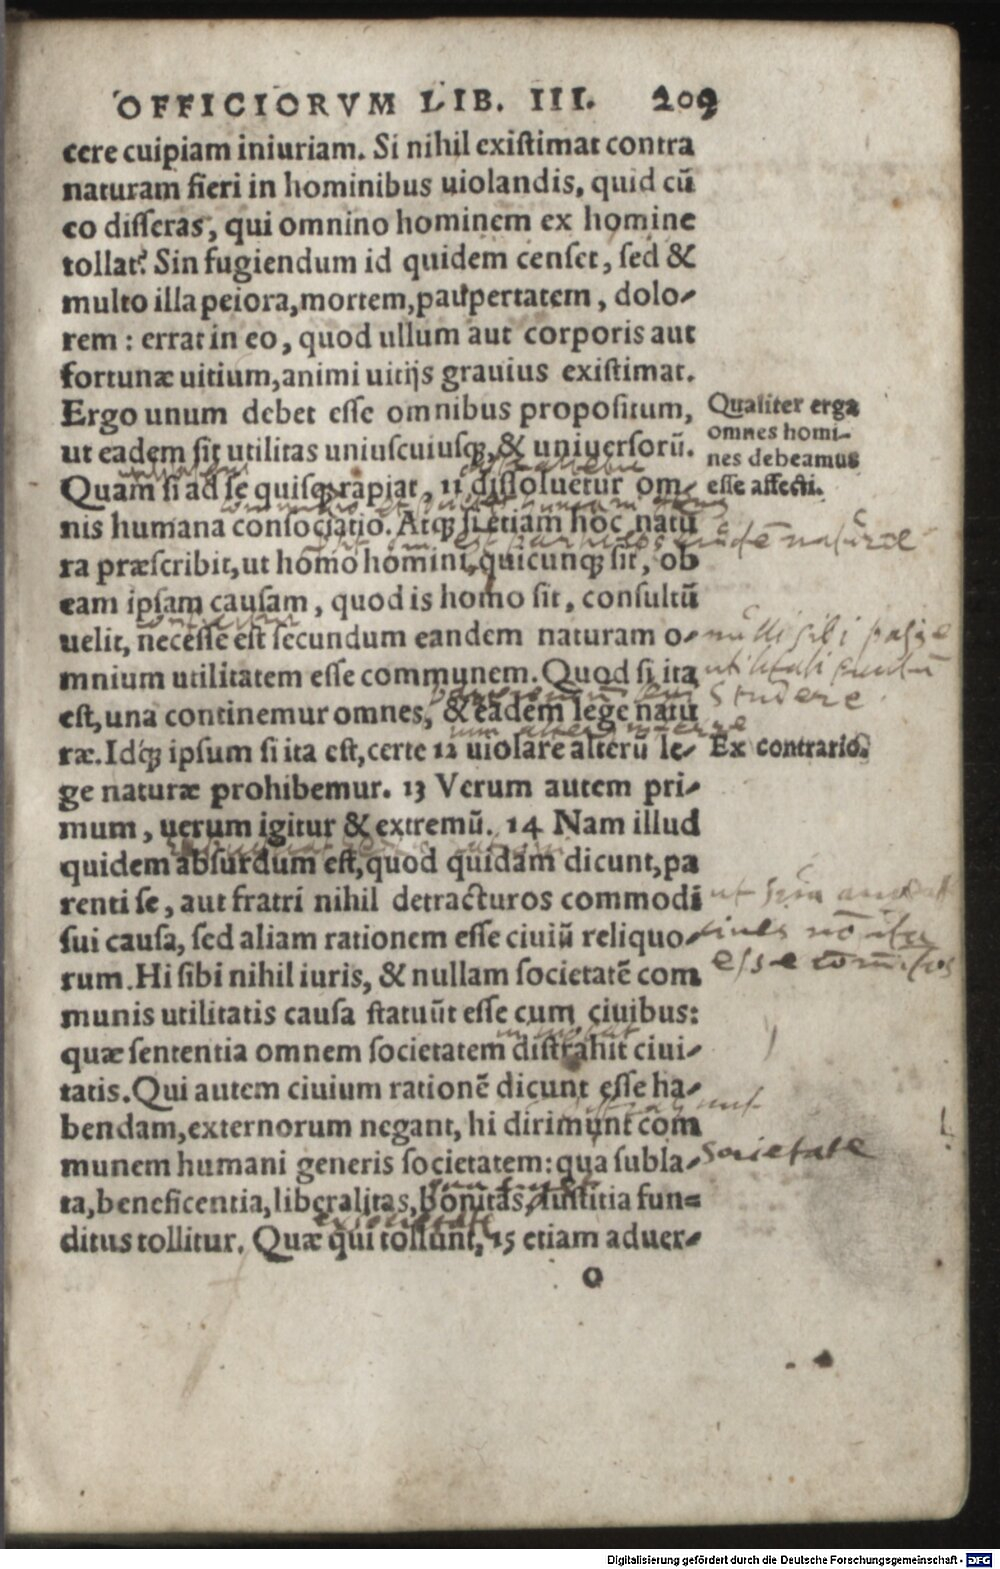 OFFICIORVM LIB. III. 209
cere cuipiam iniuriam. Si nihil existimat contra
naturam fieri in hominibus uiolandis, quid cũ
eo disseras, qui omnino hominem ex homine
tollat? Sin fugiendum id quidem censet, sed &
multo illa peiora, mortem, paupertatem, dolo-
rem: errat in eo, quod ullum aut corporis aut
fortunæ uitium, animi uitijs grauius existimat.
Ergo unum debet esse omnibus propositum,
ut eadem sit utilitas uniuscuiusq;, & uniuersorũ.
Quam si ad se quisq; rapiat, 11 dissoluetur om-
nis humana consociatio. Atq; si etiam hoc natu
ra præscribit, ut homo homini, quicunq; sit, ob
eam ipsam causam, quod is homo sit, consultũ
uelit, necesse est secundum eandem naturam o-
mnium utilitatem esse communem. Quod si ita
est, una continemur omnes, & eadem lege natu
ræ. Idq; ipsum si ita est, certe 12 uiolare alterũ le-
ge naturæ prohibemur. 13 Verum autem pri-
mum, uerum igitur & extremũ. 14 Nam illud
quidem absurdum est, quod quidam dicunt, pa
renti se, aut fratri nihil detracturos commodi
sui causa, sed aliam rationem esse ciuiũ reliquo-
rum. Hi sibi nihil iuris, & nullam societatẽ com
munis utilitatis causa statuũt esse cum ciuibus:
quæ sententia omnem societatem distrahit ciui-
tatis. Qui autem ciuium rationẽ dicunt esse ha-
bendam, externorum negant, hi dirimunt com
munem humani generis societatem: qua subla-
ta, beneficentia, liberalitas, bonitas, iustitia fun-
ditus tollitur. Quæ qui tollunt, 15 etiam aduer-
O
Qualiter erga
omnes homi-
nes debeamus
esse affecti.
naturæ
studere
Ex contrario.
esse
societate
Digitalisierung gefördert durch die Deutsche Forschungsgemeinschaft - DFG